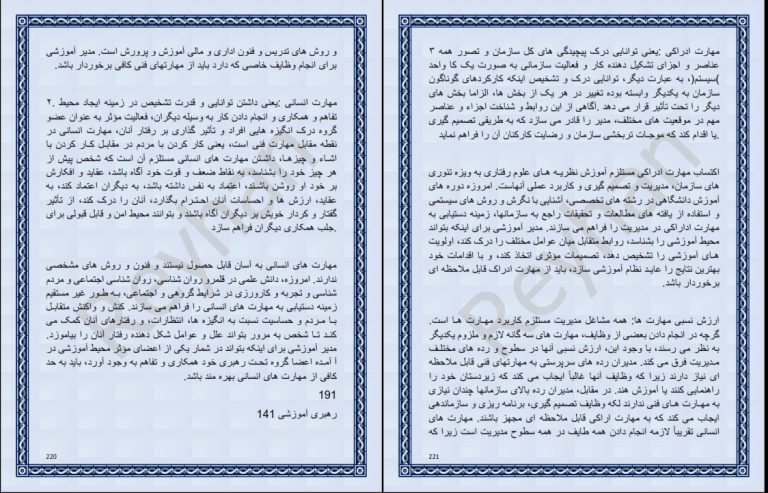 و روش های تدریس و فنون اداری و مالی آموزش و پرورش است. مدیر آموزشی
برای انجام وظایف خاصی که دارد باید از مهارتهای فنی کافی برخوردار باشد.
مهارت انسانی :یعنی داشتن توانایی و قدرت تشخیص در زمینه ایجاد محیط .۲
تفاهم و همکاری و انجام دادن کار به وسیله دیگران، فعالیت مؤثر به عنوان عضو
گروه درک انگیزه هایی افراد و تأثیر گذاری بر رفتار آنان، مهارت انسانی در
نقطه مقابل مهارت فنی است، یعنی کار کردن با مردم در مقابل کار کردن با
اشاء و چیزها، داشتن مهارت های انسانی مستلزم آن است که شخص پیش از
هر چیز خود را بشناسد، به نقاط ضعف و قوت خود آگاه باشد، عقاید و افکارش
بر خود او روشن باشند، اعتماد به نفس داشته باشد، به دیگران اعتماد کند، به
عقاید، ارزش ها و احساسات آنان احترام بگذارد، آنان را درک کند، از تأثیر
گفتار و کردار خویش بر دیگران آگاه باشند و بتوانند محیط امن و قابل قبولی برای
.جلب همکاری دیگران فراهم سازد
مهارت های انسانی به آسان قابل حصول نیستند و فنون و روش های مشخصی
ندارند. امروزه، دانش علمی در قلمرو روان شناسی، روان شناسی اجتماعی و مردم
شناسی و تجربه و کارورزی در شرایط گروهی و اجتماعی، به طور غیر مستقیم
زمینه دستیابی به مهارت های انسانی را فراهم می سازند. کنش و واکنش متقابل
با مردم و حساسیت نسبت به انگیزه ها، انتظارات، و رفتارهای آنان کمک می
کند تا شخص به مرور بتواند علل و عوامل شکل دهنده رفتار آنان را بیاموزد.
مدیر آموزشی برای اینکه بتواند در شمار یکی از اعضای مؤثر محیط آموزشی در
آ آمده اعضا گروه تحت رهبری خود همکاری و تفاهم به وجود آورد، باید به حد
کافی از مهارت های انسانی بهره مند باشد.
191
رهبری آموزشی 141
220
مهارت ادراکی :یعنی توانایی درک پیچیدگی های کل سازمان و تصور همه ۳
عناصر و اجزای تشکیل دهنده کار و فعالیت سازمانی به صورت یک کا واحد
)سیستم(، به عبارت دیگر، توانایی درک و تشخیص اینکه کارکردهای گوناگون
سازمان به یکدیگر وابسته بوده تغییر در هر یک از بخش ها، الزاما بخش های
دیگر را تحت تأثیر قرار می دهد .آگاهی از این روابط و شناخت اجزاء و عناصر
مهم در موقعیت های مختلف، مدیر را قادر می سازد که به طریقی تصمیم گیری
.یا اقدام کند که موجبات تربخشی سازمان و رضایت کارکنان آن را فراهم نماید
اکتساب مهارت ادراکی مستلزم آموزش نظریه های علوم رفتاری به ویژه تئوری
های سازمان، مدیریت و تصمیم گیری و کاربرد عملی آنهاست. امروزه دوره های
آموزش دانشگاهی در رشته های تخصصی، آشنایی با نگرش و روش های سیستمی
و استفاده از یافته های مطالعات و تحقیقات راجع به سازمانها، زمینه دستیابی به
مهارت اداراکی در مدیریت را فراهم می سازند. مدیر آموزشی برای اینکه بتواند
محیط آموزشی را بشناسد، روابط متقابل میان عوامل مختلف را درک کند، اولویت
های آموزشی را تشخیص دهد، تصمیمات مؤثری اتخاذ کند، و با اقدامات خود
بهترین نتایج را عاید نظام آموزشی سازد، باید از مهارت ادراک قابل ملاحظه ای
برخوردار باشد.
ارزش نسبی مهارت ها: همه مشاغل مدیریت مستلزم کاربرد مهارت ها است.
گرچه در انجام دادن بعضی از وظایف، مهارت های سه گانه لازم و ملزوم یکدیگر
به نظر می رسند، با وجود این، ارزش نسبی آنها در سطوح و رده های مختلف
مدیریت فرق می کند. مدیران رده های سرپرستی به مهارتهای فنی قابل ملاحظه
ای نیاز دارند زیرا که وظایف آنها غالباً ایجاب می کند که زیردستان خود را
راهنمایی کنند یا آموزش هند. در مقابل، مدیران رده بالای سازمانها چندان نیازی
به مهارت های فنی ندارند لکه وظایف تصمیم گیری، برنامه ریزی و سازماندهی
ایجاب می کند که به مهارت اراکی قابل ملاحظه ای مجهز باشند. مهارت های
انسانی تقریباً لازمه انجام دادن همه طایف در همه سطوح مدیریت است زیرا که
221